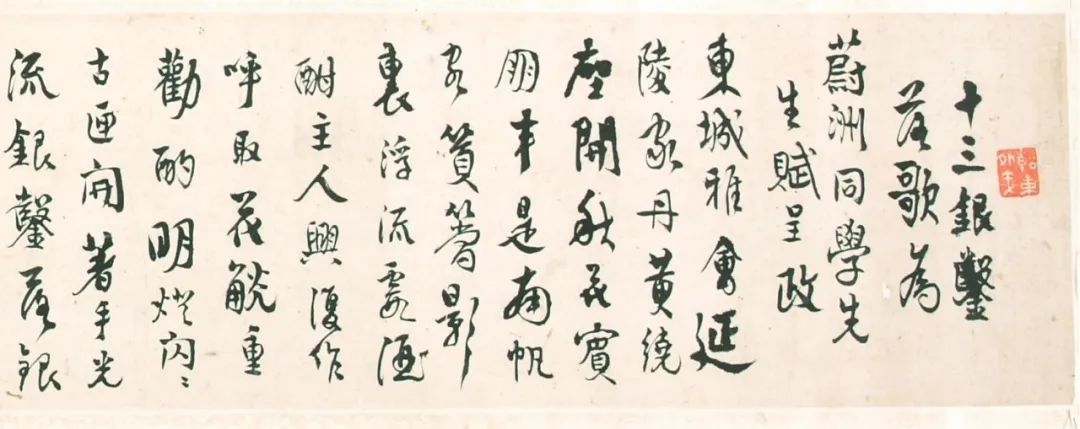 十三銀鑿
落歌為
蔚洲同學先
生賦呈政
東城雅會延
陵家丹黃繞
座開秋花賓
朋半是南帆
客篔簹影
裏浮流霞酒
酣主人興復作
呼取花觥重
勸酌明燈閃〻
古匣開著手光
流銀鑿落銀